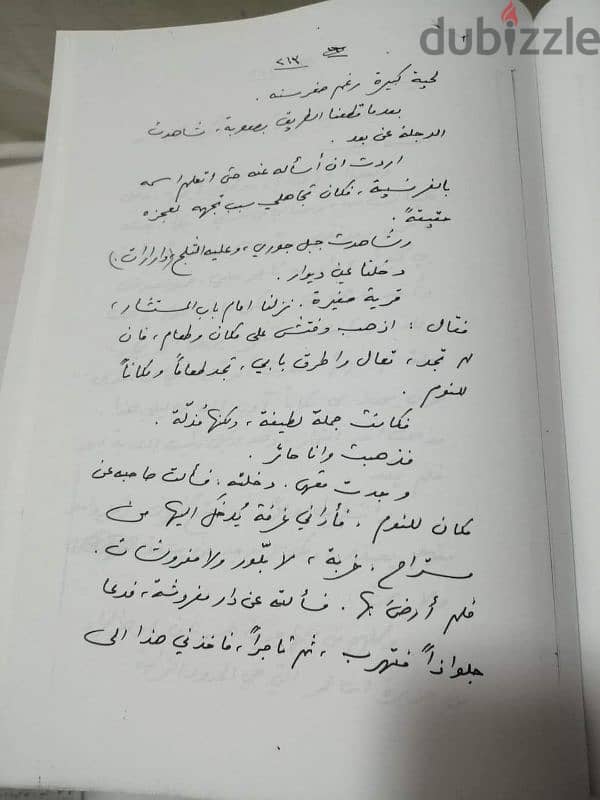 dubizzle
٢١٣
لحية كبيرة رغم صغر سنه .
بعدما قطعنا الطريق بصعوبة، شاهدت
الدجلة عن بعد .
اردت ان أسأله عنه حتى اتعلم اسمه
بالفرنسية، فكان تجاهلي سبب تجهه لعجزه
حقيقةً .
وشاهدت جبل جوري، وعليه الثلج (وارارات.)
دخلنا عين ديوار .
قرية صغيرة . نزلنا امام باب المستشار،
فقال : اذهب وفتش على مكان وطعام، فان
لم تجد، تعال واطرق بابي، تجد طعاماً ومكاناً
للنوم .
فكانت جملة لطيفة، ولكنها مُذلّة .
فذهبت وانا حائر .
وجدت مقهى . دخلته . فسألت صاحبه عن
مكان للنوم . فأراني غرفة يُدخَل اليها من
مستراح . خربة، لا بلّور ولا مفروشات .
فلم أرضَ بها . فسألته عن دار مفروشة، فدعا
جلوازاً فتهرب، ثم تاجراً، فاخذني هذا الى